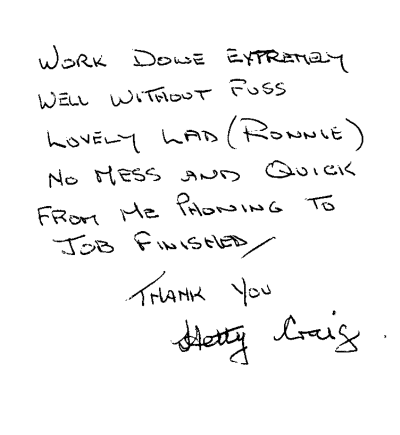 WORK DONE EXTREMELY
WELL WITHOUT FUSS
LOVELY LAD (RONNIE)
NO MESS AND QUICK
FROM ME PHONING TO
JOB FINISHED/
THANK YOU
Hetty Craig.